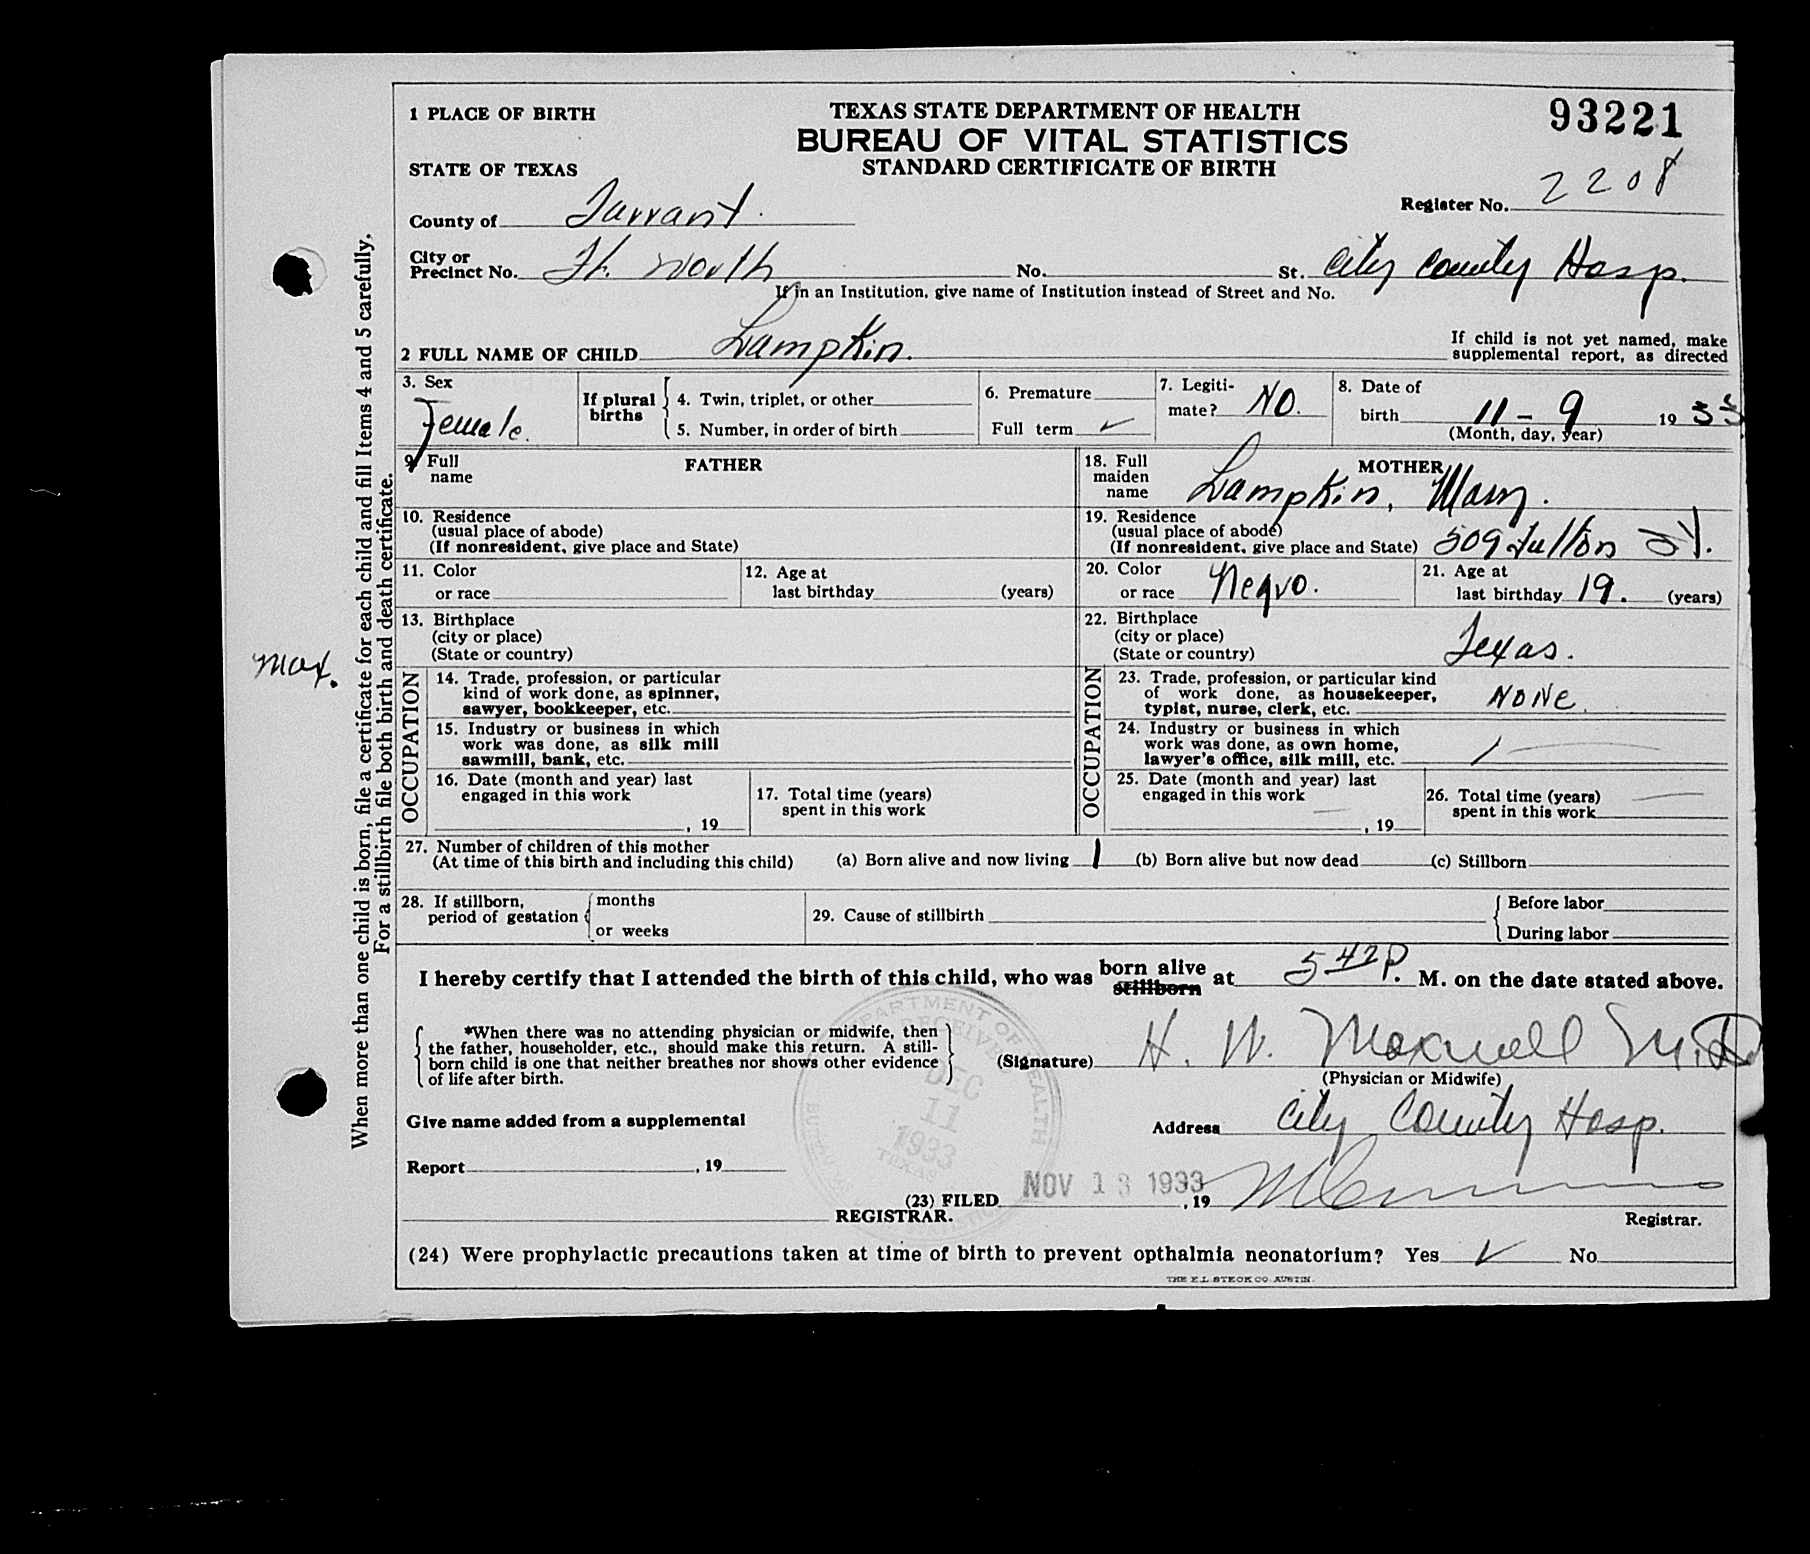 1 PLACE OF BIRTH
TEXAS STATE DEPARTMENT OF HEALTH
BUREAU OF VITAL STATISTICS
STANDARD CERTIFICATE OF BIRTH
93221
STATE OF TEXAS
County of Tarrant.
Register No. 2208
City or Precinct No. Ft. Worth No. St. City County Hosp.
If in an Institution, give name of Institution instead of Street and No.
2 FULL NAME OF CHILD Lampkin.
If child is not yet named, make
supplemental report, as directed
3. Sex Female.
If plural births
4. Twin, triplet, or other
5. Number, in order of birth
6. Premature
Full term ✓
7. Legiti-
mate? NO.
8. Date of
birth 11-9 1933
(Month, day, year)
FATHER
9. Full
name
10. Residence
(usual place of abode)
(If nonresident, give place and State)
11. Color
or race
12. Age at
last birthday (years)
13. Birthplace
(city or place)
(State or country)
OCCUPATION
14. Trade, profession, or particular
kind of work done, as spinner,
sawyer, bookkeeper, etc.
15. Industry or business in which
work was done, as silk mill
sawmill, bank, etc.
16. Date (month and year) last
engaged in this work
, 19
17. Total time (years)
spent in this work
MOTHER
18. Full
maiden
name Lampkin, Mary.
19. Residence
(usual place of abode)
(If nonresident, give place and State) 509 Fulton St.
20. Color
or race Negro.
21. Age at
last birthday 19. (years)
22. Birthplace
(city or place)
(State or country) Texas.
OCCUPATION
23. Trade, profession, or particular kind
of work done, as housekeeper,
typist, nurse, clerk, etc. NONe.
24. Industry or business in which
work was done, as own home,
lawyer's office, silk mill, etc.
25. Date (month and year) last
engaged in this work
, 19
26. Total time (years)
spent in this work
27. Number of children of this mother
(At time of this birth and including this child) (a) Born alive and now living 1 (b) Born alive but now dead (c) Stillborn
28. If stillborn,
period of gestation
months
or weeks
29. Cause of stillbirth
Before labor
During labor
I hereby certify that I attended the birth of this child, who was born alive stillborn at 5 42 P. M. on the date stated above.
*When there was no attending physician or midwife, then
the father, householder, etc., should make this return. A still-
born child is one that neither breathes nor shows other evidence
of life after birth.
(Signature) H. W. Maxwell M.D
(Physician or Midwife)
Give name added from a supplemental
Address City County Hosp.
Report , 19
(23) FILED NOV 13 1933 , 19
REGISTRAR.
Registrar.
(24) Were prophylactic precautions taken at time of birth to prevent opthalmia neonatorium? Yes ✓ No
THE E.L. STECK CO. AUSTIN.
RECEIVED
DEC
11
1933
TEXAS
When more than one child is born, file a certificate for each child and fill Items 4 and 5 carefully.
For a stillbirth file both birth and death certificate.